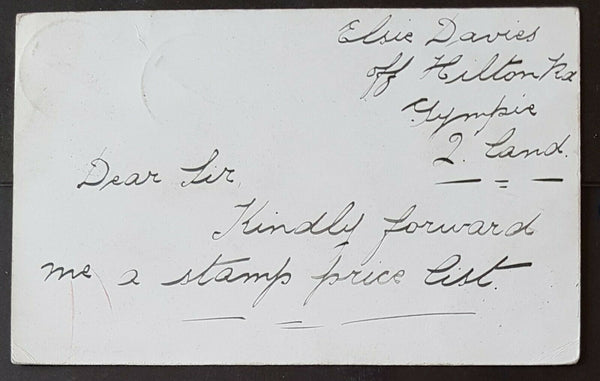 Elsie Davies
off Hilton Rd
Gympie
Q. land.
Dear Sir,
Kindly forward
me a stamp price list.